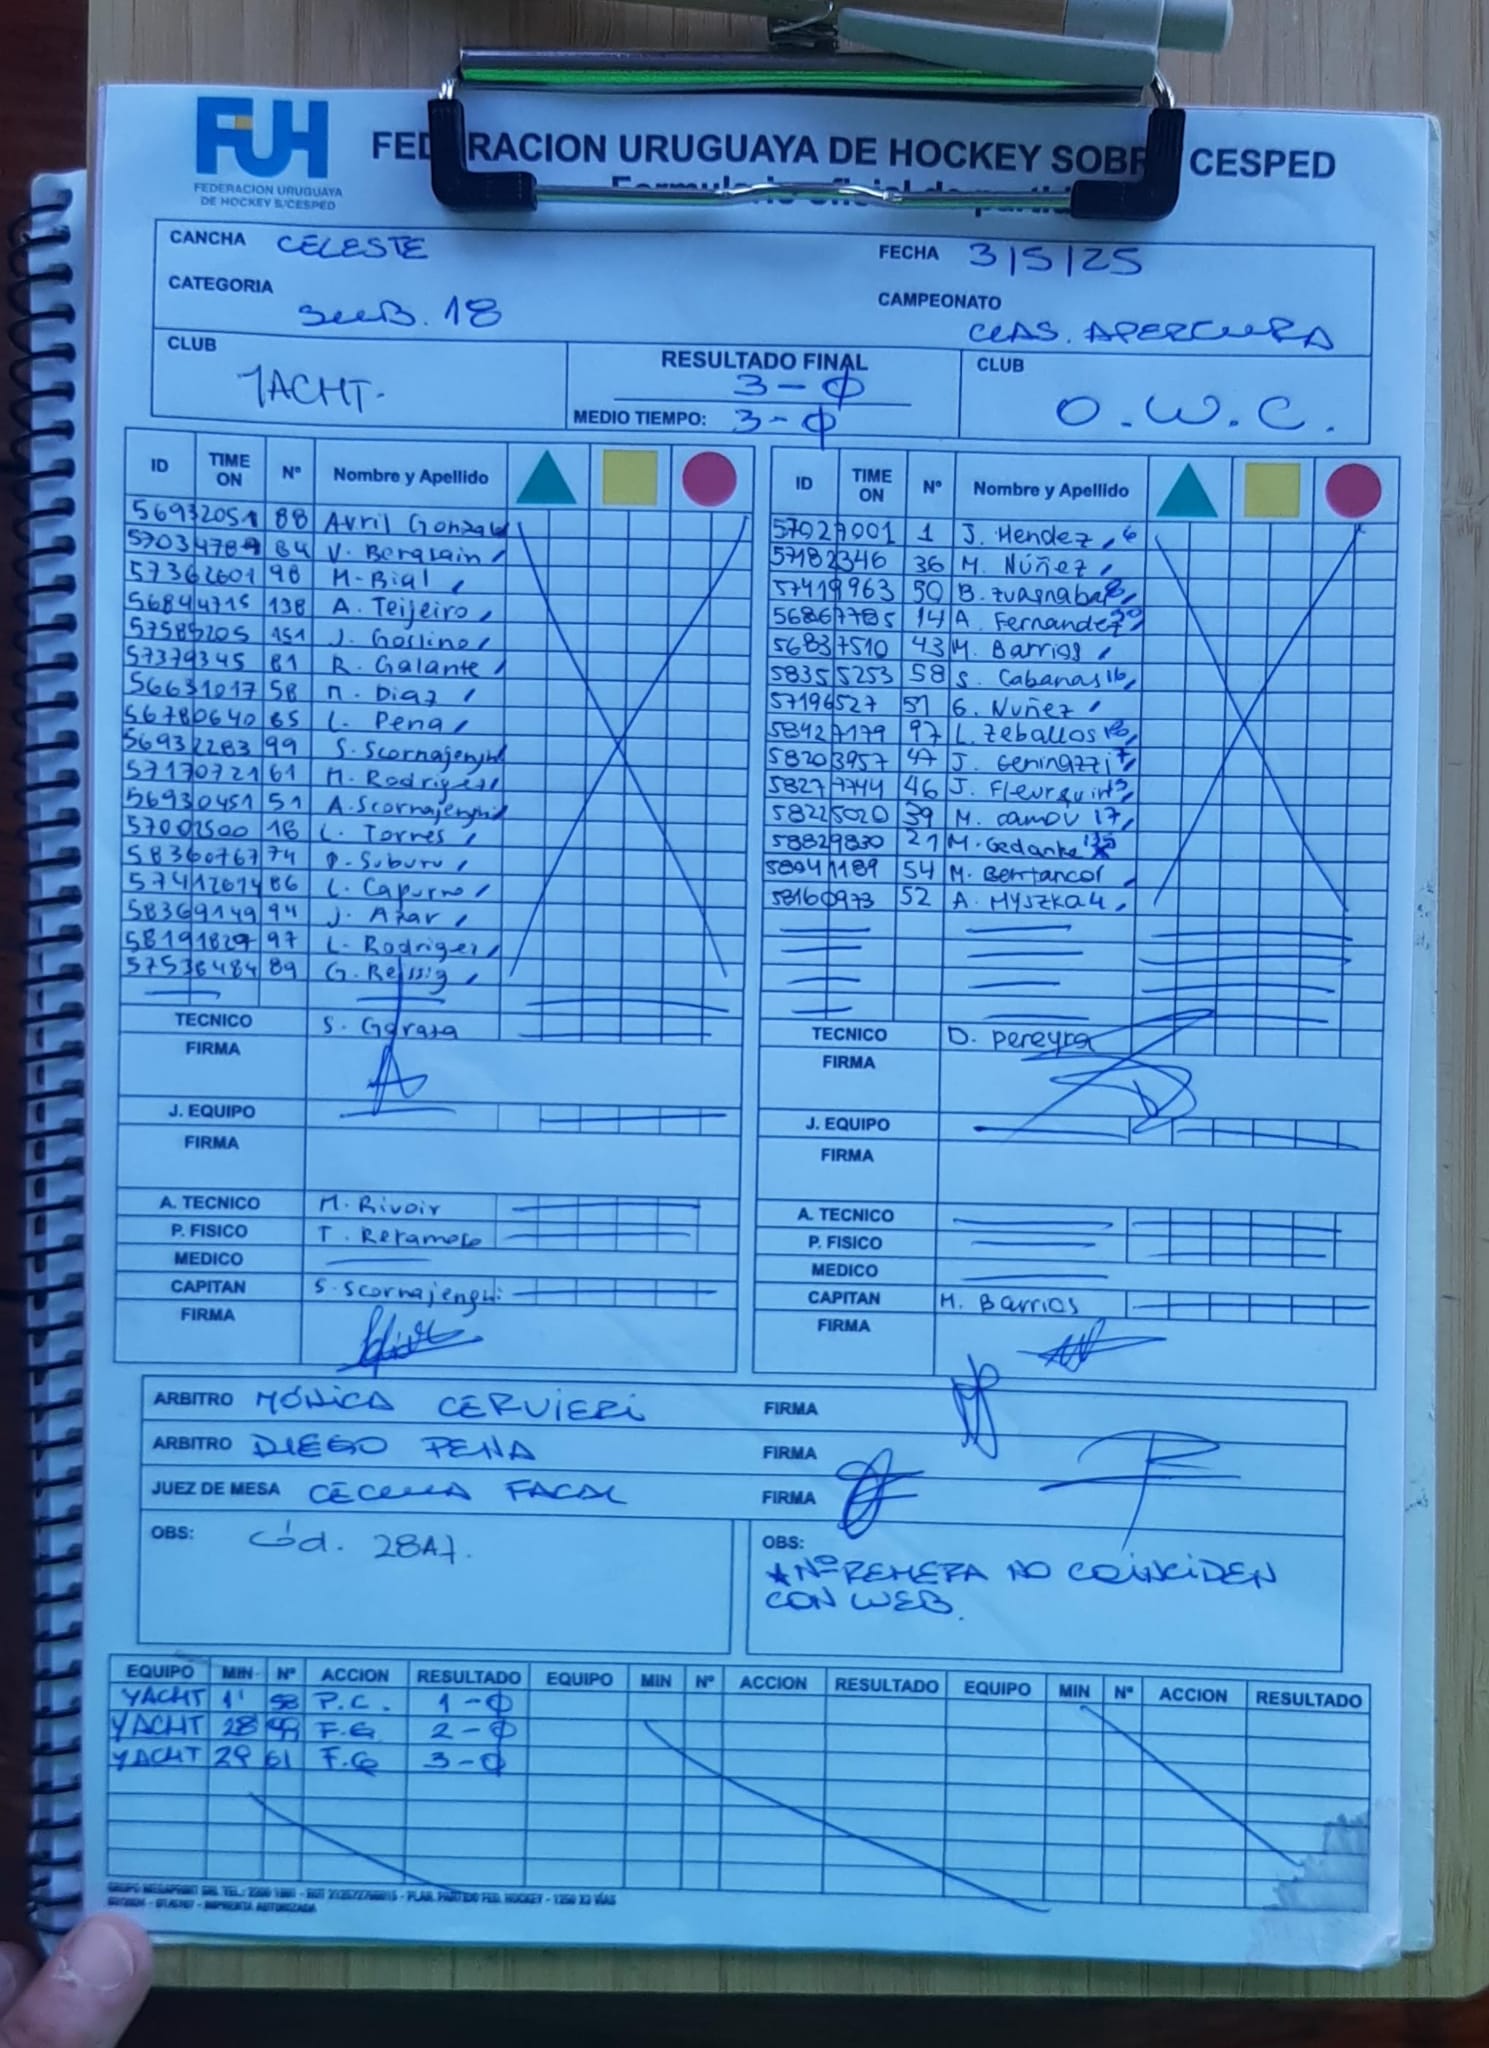 FUH
FEDERACION URUGUAYA
DE HOCKEY S/CESPED
FEDERACION URUGUAYA DE HOCKEY SOBRE CESPED
CANCHA CELESTE
FECHA 3/5/25
CATEGORIA SUB.18
CAMPEONATO CLAS. APERTURA
CLUB YACHT.
RESULTADO FINAL 3-0
MEDIO TIEMPO: 3-0
CLUB O.W.C.
ID TIME ON Nº Nombre y Apellido
56932051 88 Avril Gonzal
57034789 84 V. Bergalain
57362601 98 M. Bial
56844715 138 A. Teijeiro
57585205 151 J. Goslino
57379345 81 R. Galante
56631017 58 M. Diaz
56780640 65 L. Pena
56932283 99 S. Scornajenghi
57170721 61 M. Rodriguez
56930451 51 A. Scornajenghi
57002500 18 L. Torres
58360767 74 P. Suburu
57412614 86 L. Capurro
58369149 94 J. Azar
58191829 97 L. Rodriguez
57536484 89 G. Reissig
TECNICO S. Garasa
FIRMA
J. EQUIPO
FIRMA
A. TECNICO M. Rivoir
P. FISICO T. Retamoso
MEDICO
CAPITAN S. Scornajenghi
FIRMA
ID TIME ON Nº Nombre y Apellido
57027001 1 J. Mendez 6
57182346 36 M. Núñez
57419963 50 B. Zuasnabar 8
56867785 14 A. Fernandez 30
56837510 43 M. Barrios
58355253 58 S. Cabanas 16
57196527 51 G. Nuñez
58427179 97 L. Zeballos 18
58203957 47 J. Geninazzi 7
58277744 46 J. Fleurquin 13
58225020 39 M. Camou 17
58829830 21 M. Gedanke
58041189 54 M. Bentancor
58160973 52 A. Myszka 4
TECNICO D. Pereyra
FIRMA
J. EQUIPO
FIRMA
A. TECNICO
P. FISICO
MEDICO
CAPITAN M. Barrios
FIRMA
ARBITRO MÓNICA CERVIERI FIRMA
ARBITRO DIEGO PENA FIRMA
JUEZ DE MESA CECILIA FACAL FIRMA
OBS: Cód. 28A7.
OBS:
*Nº REMERA NO COINCIDEN
CON WEB.
EQUIPO MIN Nº ACCION RESULTADO EQUIPO MIN Nº ACCION RESULTADO EQUIPO MIN Nº ACCION RESULTADO
YACHT 1' 58 P.C. 1-0
YACHT 28 99 F.G 2-0
YACHT 29 61 F.G 3-0